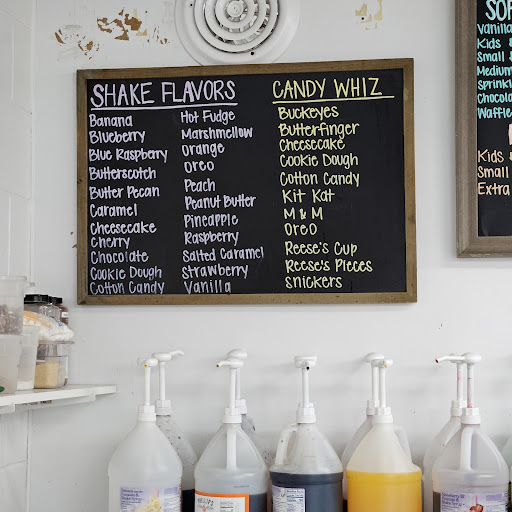 SHAKE FLAVORS
Banana
Blueberry
Blue Raspberry
Butterscotch
Butter Pecan
Caramel
Cheesecake
Cherry
Chocolate
Cookie Dough
Cotton Candy
Hot Fudge
Marshmellow
Orange
Oreo
Peach
Peanut Butter
Pineapple
Raspberry
Salted Caramel
Strawberry
Vanilla
CANDY WHIZ
Buckeyes
Butterfinger
Cheesecake
Cookie Dough
Cotton Candy
Kit Kat
M & M
Oreo
Reese's Cup
Reese's Pieces
Snickers
Vanilla
Kids &
Small &
Medium
Sprinkl
Chocola
Waffle
Kids &
Small
Extra